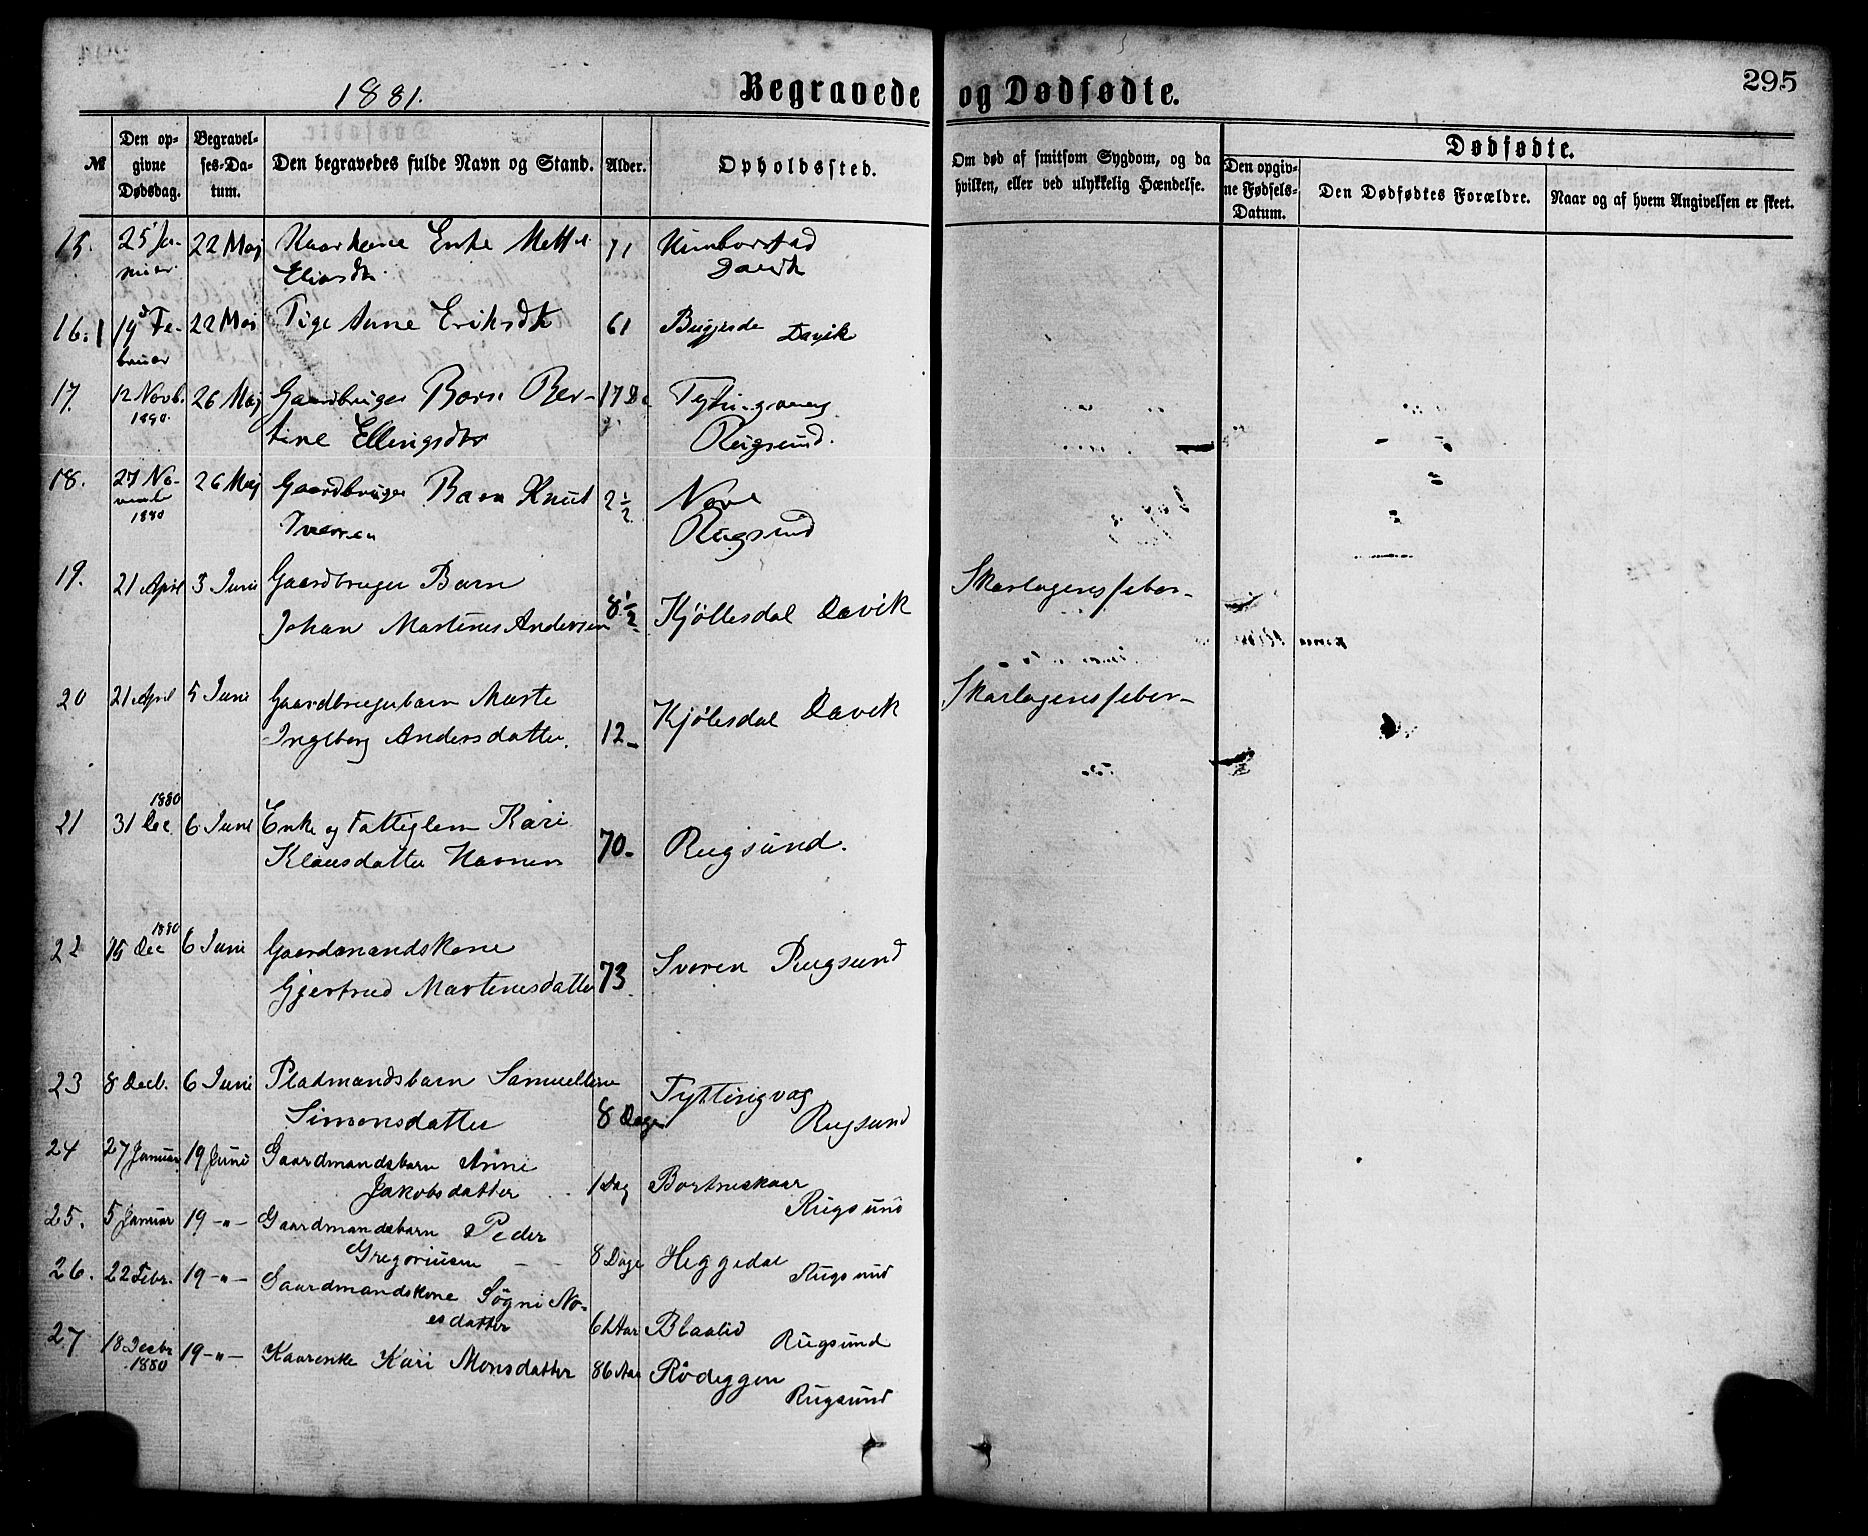 1881.
Begravede og Dødfødte.
295
№
Den opgivne Dødsdag.
Begravelses-Datum.
Den begravedes fulde Navn og Stand.
Alder.
Opholdssted.
Om død af smitsom Sygdom, og da hvilken, eller ved ulykkelig Hændelse.
Dødfødte.
Den opgivne Fødsels-Datum.
Den Dødfødtes Forældre.
Naar og af hvem Angivelsen er skeet.
15. 25 Ja- 22 Maj Enke 71
nuar Eliasdtr Davik
16. 19 Fe- 22 Mai Pige Anne Eriksdtr 61 Davik
bruar
17. 12 Novb. 26 Maj Gaardbruger Barn Ber- 17
1880. tine Ellingsdtr Rugsund.
18. 27 No- 26 Maj Gaardbruger Barn Knut 2½ Nave
vemb 1880 Iversen Rugsund
19. 21 April 3 Juni Gaardbruger Barn Skarlagensfeber-
Johan Martines Andersen 8½ Kjöllesdal Davik
20 21 April 5 Juni Gaardbrugerbarn Marte Skarlagensfeber-
Ingeborg Andersdatter. 12- Kjölesdal Davik
1880
21 31 Dec. 6 Juni Enke og Fattiglem Kari
Klausdatter Havnen 70- Rugsund.
1880
22 15 Dec 6 Juni Gaardmandskone
Gjertrud Martinusdatter 73 Svoren Rugsund
23 8 Decb. 6 Juni Pladsmandsbarn Samueline
Simonsdatter 8 Dage Tyttingvag Rugsund
24 27 Januar 19 Juni Gaardmandsbarn Anne
Jakobsdatter 1 Dag Bortneskaar Rugsund
25. 5 Januar 19 -"- Gaardmandsbarn Peder
Gregoriusen - - 8 Dage Heggedal Rugsund
26. 22 Febr. 19 -"- Gaardmandskone Søgni No-
esdatter 61 Aar Blaalid Rugsund
27 18 Decbr 1880 19 -"- Kaarenke Kari Monsdatter 86 Aar Rödeggen
Rugsund